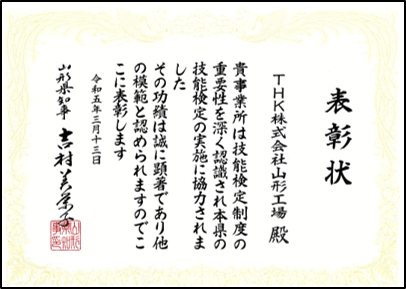 表彰状
THK株式会社山形工場 殿
貴事業所は技能検定制度の
重要性を深く認識され本県の
技能検定の実施に協力されま
した
その功績は誠に顕著であり他
の模範と認められますのでこ
こに表彰します
令和五年三月十三日
山形県知事 吉村美栄子